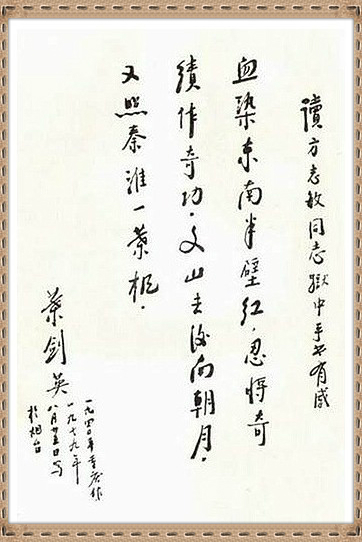 讀方志敏同志獄中手书有感
血染东南半壁红，忍将奇
绩作奇功。文山去後南朝月，
又照秦淮一葉枫。
葉剑英
一九四〇年重庆作
一九七九年
八月廿五日写
於烟台